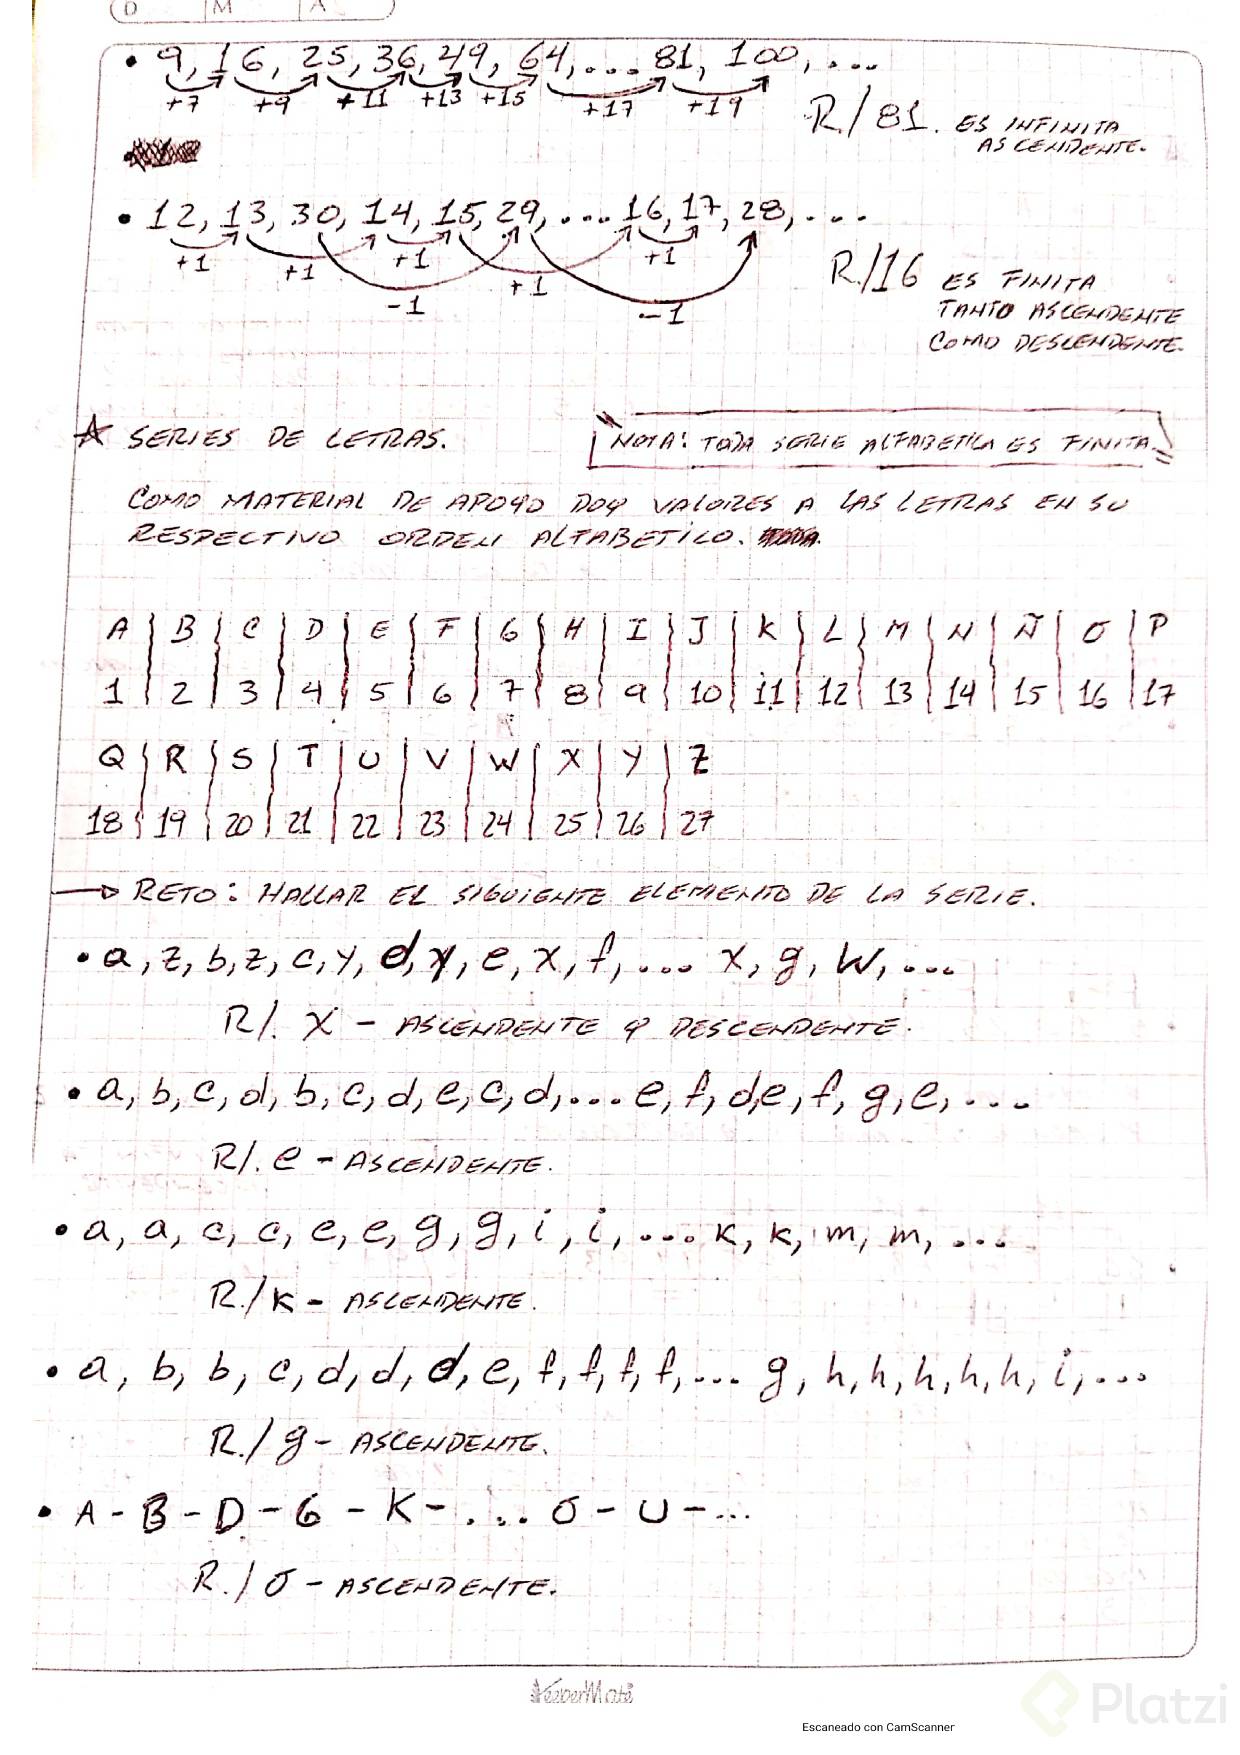 D M A
• 9, 16, 25, 36, 49, 64, ... 81, 100, ...
+7 +9 +11 +13 +15 +17 +19
R/ 81. ES INFINITA
ASCENDENTE.
• 12, 13, 30, 14, 15, 29, ... 16, 17, 28, ...
+1 +1 +1 -1 +1 +1 -1
R./16 ES FINITA
TANTO ASCENDENTE
COMO DESCENDENTE.
SERIES DE LETRAS.
NOTA: TODA SERIE ALFABETICA ES FINITA.
COMO MATERIAL DE APOYO DOY VALORES A LAS LETRAS EN SU
RESPECTIVO ORDEN ALFABETICO.
A B C D E F G H I J K L M N Ñ O P
1 2 3 4 5 6 7 8 9 10 11 12 13 14 15 16 17
Q R S T U V W X Y Z
18 19 20 21 22 23 24 25 26 27
→ RETO: HALLAR EL SIGUIENTE ELEMENTO DE LA SERIE.
• a, z, b, z, c, y, d, y, e, x, f, ... x, g, w, ...
R/. X - ASCENDENTE Y DESCENDENTE.
• a, b, c, d, b, c, d, e, c, d, ... e, f, d, e, f, g, e, ...
R/. e - ASCENDENTE.
• a, a, c, c, e, e, g, g, i, i, ... k, k, m, m, ...
R./ K - ASCENDENTE.
• a, b, b, c, d, d, d, e, f, f, f, f, ... g, h, h, h, h, h, i, ...
R./ g - ASCENDENTE.
• A - B - D - G - K - ... O - U - ...
R./ O - ASCENDENTE.
KeeperMate
Platzi
Escaneado con CamScanner